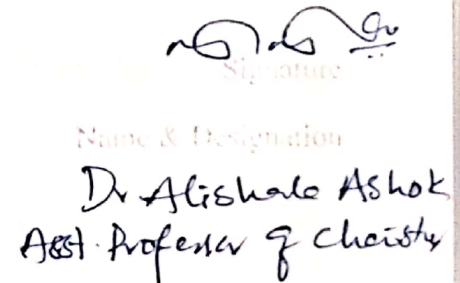 Signature
Name & Designation
Dr Alishala Ashok
Asst. Professor of